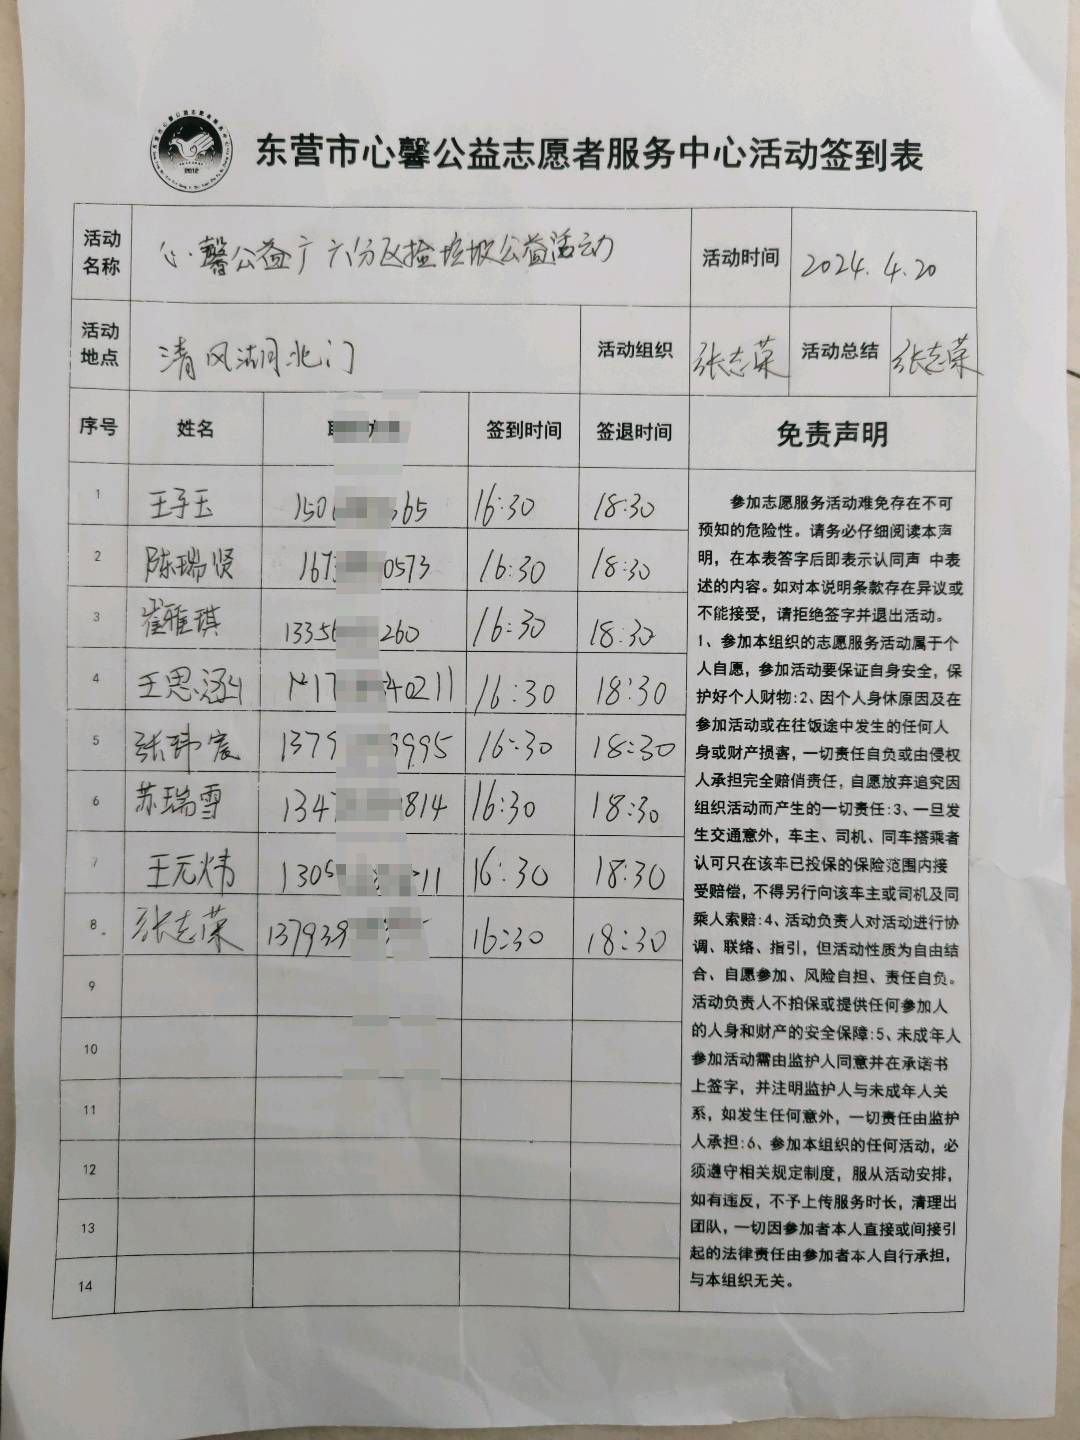 东营市心馨公益志愿者服务中心活动签到表
2012
活动名称 心馨公益广六分区捡垃圾公益活动 活动时间 2024.4.20
活动地点 清风湖北门 活动组织 张志荣 活动总结 张志荣
序号 姓名 签到时间 签退时间 免责声明
1 王子玉 150 365 16:30 18:30
2 陈瑞贤 167 0573 16:30 18:30
3 崔雅琪 1335 260 16:30 18:30
4 王思涵 17 40211 16:30 18:30
5 张玮宸 1379 9995 16:30 18:30
6 苏瑞雪 1347 1814 16:30 18:30
7 王元炜 130 11 16:30 18:30
8 张志荣 137939 16:30 18:30
9
10
11
12
13
14
参加志愿服务活动难免存在不可
预知的危险性。请务必仔细阅读本声
明，在本表答字后即表示认同声 中表
述的内容。如对本说明条款存在异议或
不能接受，请拒绝签字并退出活动。
1、参加本组织的志愿服务活动属于个
人自愿，参加活动要保证自身安全，保
护好个人财物:2、因个人身休原因及在
参加活动或在往饭途中发生的任何人
身或财产损害，一切责任自负或由侵权
人承担完全赔俏责任，自愿放弃追究因
组织活动而产生的一切责任:3、一旦发
生交通意外，车主、司机、同车搭乘者
认可只在该车已投保的保险范围内接
受赔偿，不得另行向该车主或司机及同
乘人索赔:4、活动负责人对活动进行协
调、联络、指引，但活动性质为自由结
合、自愿参加、风险自担、责任自负。
活动负责人不拍保或提供任何参加人
的人身和财产的安全保障:5、未成年人
参加活动需由监护人同意并在承诺书
上签字，并注明监护人与未成年人关
系，如发生任何意外，一切责任由监护
人承担:6、参加本组织的任何活动，必
须遵守相关规定制度，服从活动安排，
如有违反，不予上传服务时长，清理出
团队，一切因参加者本人直接或间接引
起的法律责任由参加者本人自行承担，
与本组织无关。